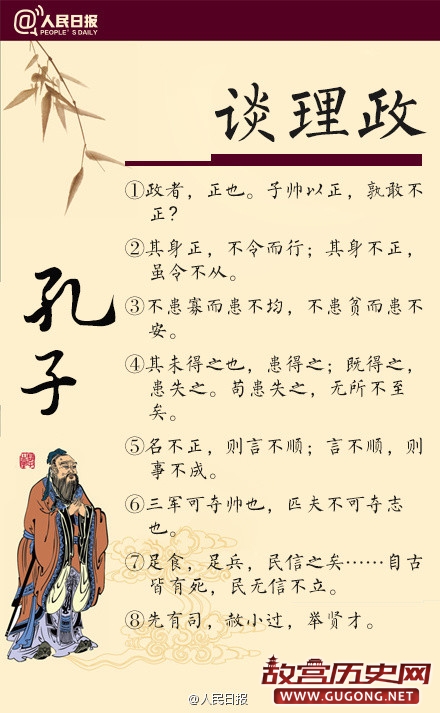 @人民日报
PEOPLE'S DAILY
谈理政
孔子
①政者，正也。子帅以正，孰敢不
正？
②其身正，不令而行；其身不正，
虽令不从。
③不患寡而患不均，不患贫而患不
安。
④其未得之也，患得之；既得之，
患失之。苟患失之，无所不至
矣。
⑤名不正，则言不顺；言不顺，则
事不成。
⑥三军可夺帅也，匹夫不可夺志
也。
⑦足食，足兵，民信之矣……自古
皆有死，民无信不立。
⑧先有司，赦小过，举贤才。
@人民日报
故宫历史网
WWW.GUGONG.NET